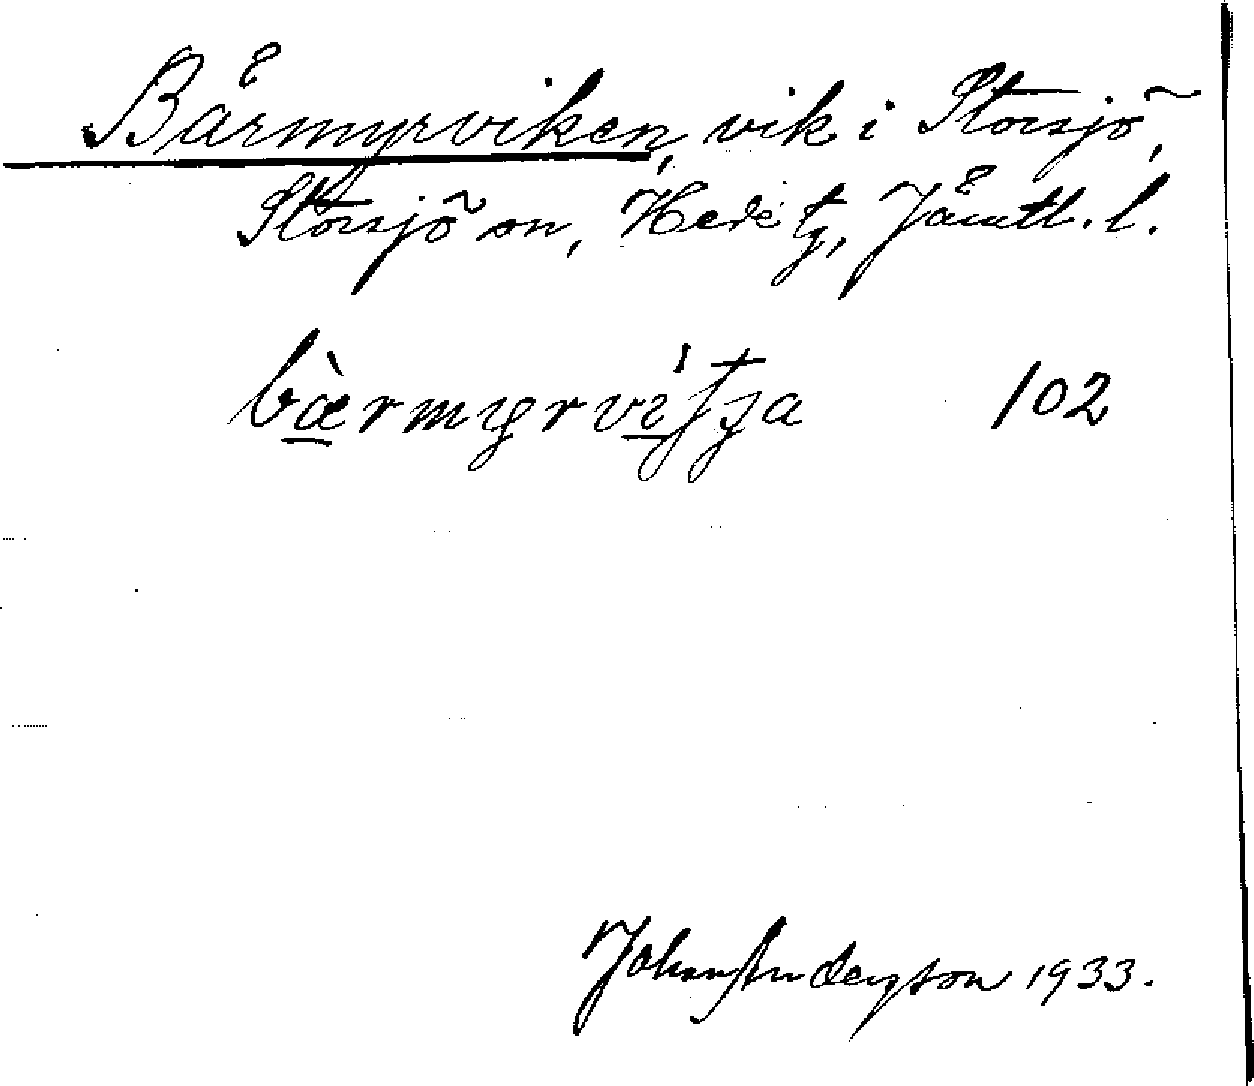 Bärmyrviken, vik i Storsjö,
Storsjö sn, Hede tg, Jämtl. l.
bæ̀rmyrvítja 102
Johan Anderson 1933.